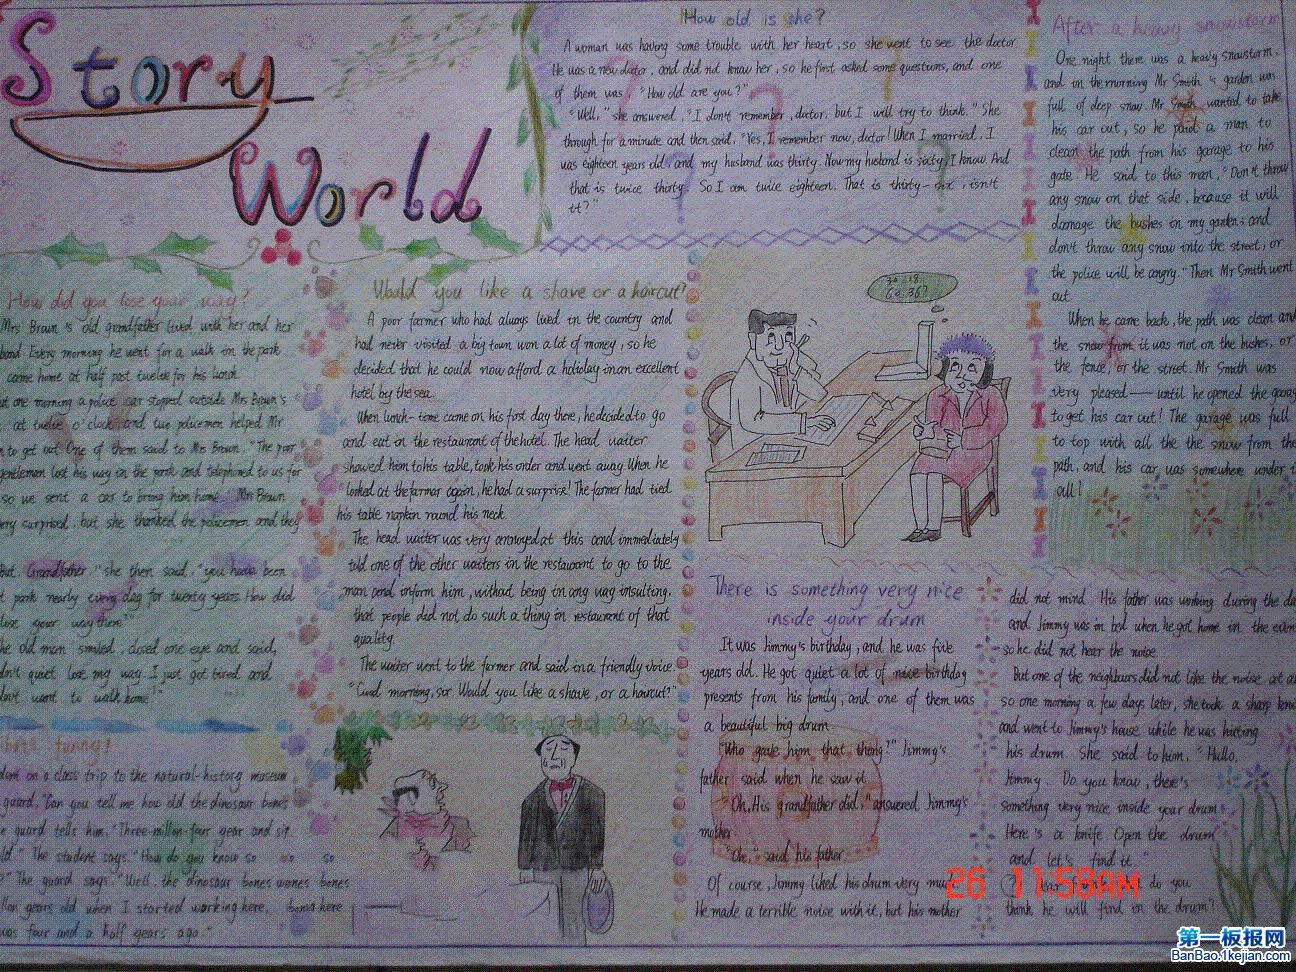 Story
World
How old is she?
A woman was having some trouble with her heart, so she went to see the doctor
He was a new doctor, and did not know her, so he first asked some questions, and one
of them was, "How old are you?"
"Well," she answered, "I don't remember, doctor. but I will try to think." She
through for a minute and then said, "Yes, I remember now, doctor! When I married, I
was eighteen years old, and my husband was thirty. Now my husband is sixty, I know. And
that is twice thirty. So I am twice eighteen. That is thirty-six, isn't
it?"
After a heavy snowstorm
One night there was a heavy snowstorm,
and in the morning Mr Smith 's garden was
full of deep snow. Mr Smith wanted to take
his car out, so he paid a man to
clean the path from his garage to his
gate. He said to this man, "Don't throw
any snow on that side, because it will
damage the bushes in my garden; and
don't throw any snow into the street, or
the police will be angry." Then Mr Smith went
out.
When he came back, the path was clean and
the snow from it was not on the bushes, or
the fence, or the street. Mr Smith was
very pleased — until he opened the garag
to get his car out! The garage was full
to top with all the the snow from the
path, and his car was somewhere under i
all!
How did you lose your way?
Mrs Brown 's old grandfather lived with her and her
band. Every morning he went for a walk in the park
came home at half past twelve for his lunch.
ut one morning a police car stopped outside Mrs Brown's
at twelve o'clock and two policemen helped Mr
n to get out. One of them said to Mrs Brown, "The poor
gentlemen lost his way in the park and telephoned to us for
so we sent a car to bring him home. Mrs Brown
ery surprised, but she thanked the policemen and they
But, Grandfather," she then said, "you have been
t park nearly every day for twenty years. How did
lose your way there?"
he old man smiled, closed one eye and said,
dn't quiet lose my way. I just got tired and
want to walk home."
Would you like a shave or a haircut?
A poor farmer who had always lived in the country and
had never visited a by town won a lot of money, so he
decided that he could now afford a holiday in an excellent
hotel by the sea.
When lunch-time came on his first day there, he decided to go
and eat in the restaurant of the hotel. The head waiter
showed him to his table, took his order and went away. When he
looked at the farmar again, he had a surprise! The farmer had tied
his table napkin round his neck.
The head waiter was very annoyed at this and immediately
told one of the other waiters in the restaurant to go to the
man and inform him, without being in any way insulting,
that people did not do such a thing in restaurant of that
quality.
The waiter went to the farmer and said in a friendly voice
"Good morning, sir. Would you like a shave, or a haircut?"
funny!
dent on a class trip to the natural-history museum
guard, "Can you tell me how old the dinosaur bones
guard tells him, "Three-million-four year and six
ld." The student says, "How do you know so so so
?" The guard says, "Well, the dinosaur bones wones bones
llion years old when I started working here, bona here
was four and a half years ago."
There is something very nice
inside your drum
It was Jimmy's birthday, and he was five
years old. He got quiet a lot of nice birthday
presents from his family, and one of them was
a beautiful big drum.
"Who gave him that thing?" Jimmy's
father said when he saw it.
"Oh, His grandfather did," answered Jimmy's
mother.
"Oh," said his father
Of course, Jimmy liked his drum very mu
He made a terrible noise with it, but his mother
did not mind. His father was working during the da
and Jimmy was in bed when he got home in the even
so he did not hear the noise.
But one of the neighbours did not like the noise at a
so one morning a few days later, she took a sharp kni
and went to Jimmy's house while he was hitting
his drum. She said to him, "Hullo,
Jimmy. Do you know, there's
something very nice inside your drum
Here's a knife. Open the drum
and let's find it."
do you
think he will find in the drum?
26 11:58AM
第一板报网
BanBao.1kejian.com